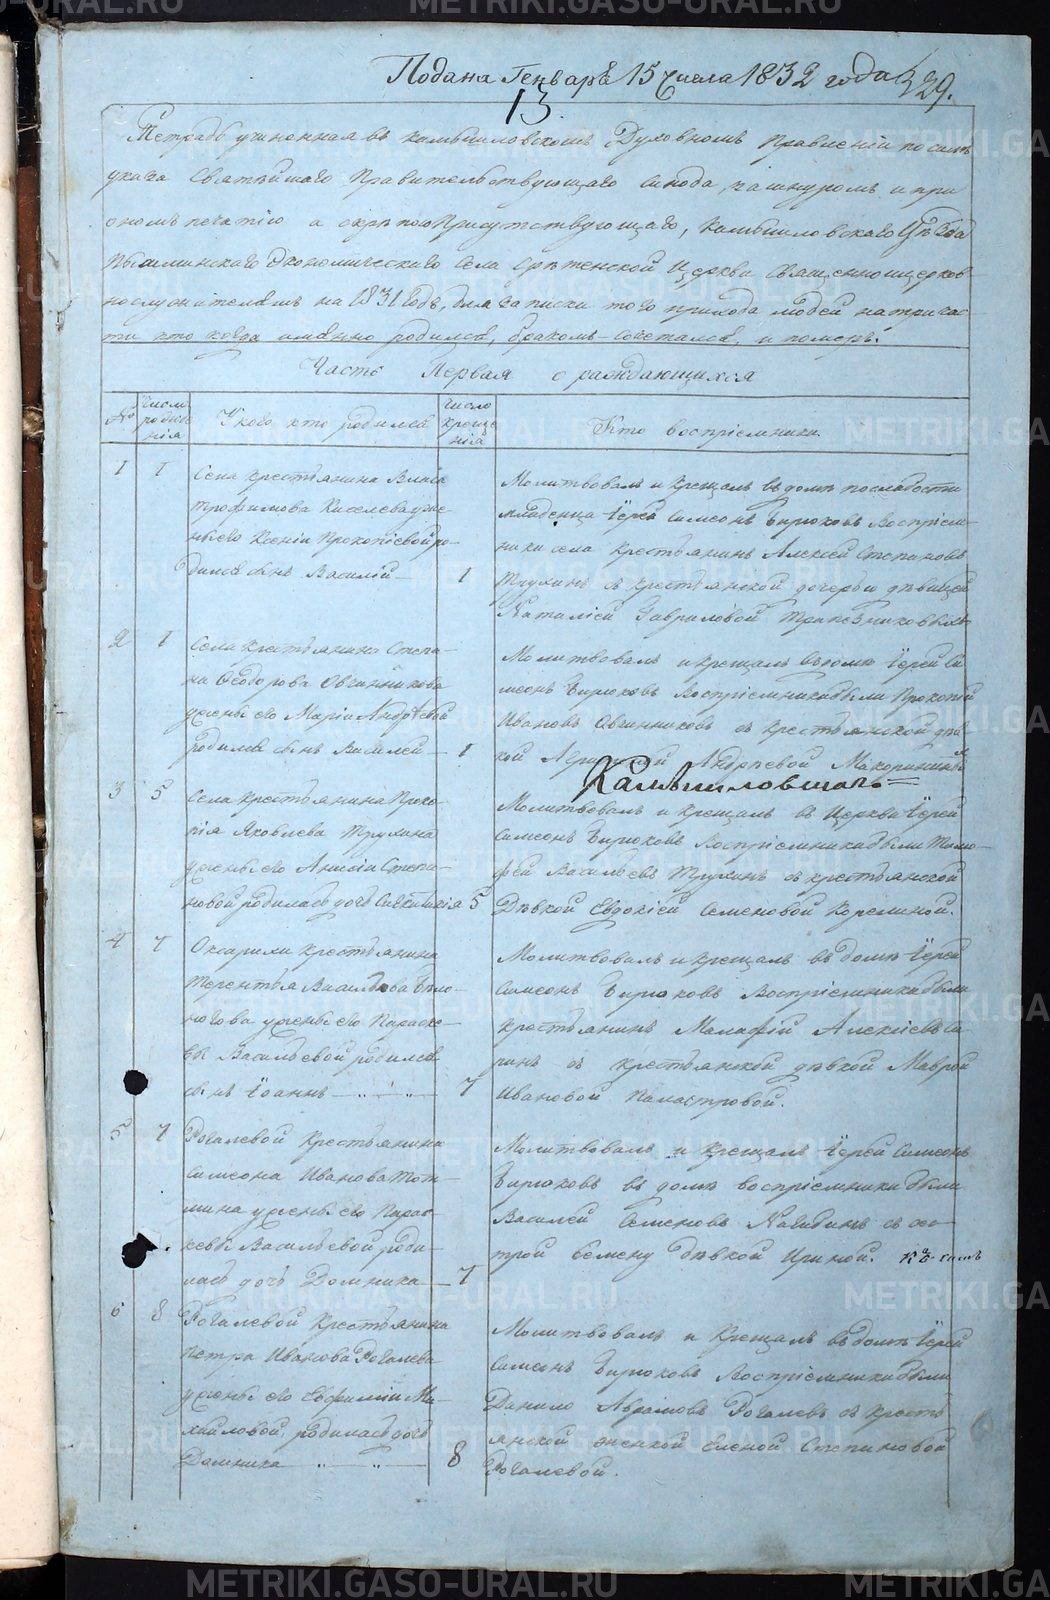 Подана Генваря 15 числа 1832 года
329.
13.
Тетрадь учиненная въ Камышловскомъ Духовномъ Правленіи по силѣ
указа Святѣйшаго Правительствующаго Синода, за шнуромъ и при
ономъ печатію а скрѣпою Присутствующаго, Камышловскаго Уѣзда
Пышминскаго Экономическаго Села Срѣтенской Церкви Священноцерков-
нослужителямъ на 1831 годъ, для записки того прихода людей на три час-
ти кто когда имянно родился, бракомъ сочетался, и померъ.
Часть Первая о раждающихся
№
Число рожде-нія
У кого кто родился
Число креще-нія
Кто воспріемники.
1 1
Села крестьянина Власа
Трофимова Киселева у же-
ны его Ксеніи Прокопіевой ро-
дился сынъ Василій 1
Молитвовалъ и крещалъ въ домѣ по слабости
младенца Іерей Симеонъ Бирюковъ Воспріем-
ники села крестьянинъ Алексей Степановъ
Трухинъ съ крестьянской дочерью дѣвицей
Наталіей Гавриловой
2 1
Села крестьянина Степа-
на Ѳеодорова Овчинникова
у жены его Маріи Андреевой
родился сынъ Василей 1
Молитвовалъ и крещалъ въ домѣ Іерей Си-
меонъ Бирюковъ Воспріемники были Прокопій
Ивановъ Овчинниковъ съ крестьянской дѣв-
кой Андреевой
Камышловскаго
3 5
Села крестьянина Проко-
пія Яковлева Трухина
у жены его Анисіи Степа-
новой родилась дочь 5
Молитвовалъ и крещалъ въ Церкви Іерей
Симеонъ Бирюковъ Воспріемники были Тимо-
фей Васильевъ Трухинъ съ крестьянской
Дѣвкой Евдокіей Семеновой Кореминой.
4 7
Окарили крестьянина
Терентья Васильева Бѣло-
ногова у жены его Параске-
вы Васильевой родился
сынъ Іоаннъ 7
Молитвовалъ и крещалъ въ домѣ Іерей
Симеонъ Бирюковъ Воспріемники были
крестьянинъ Малафій Алексіевъ
съ крестьянской дѣвкой Маврой
Ивановой
5 7
Рогалевой крестьянина
Симеона Иванова
у жены его Парас-
кевы Васильевой роди-
лась дочь Домника 7
Молитвовалъ и крещалъ Іерей Симеонъ
Бирюковъ въ домѣ воспріемники были
Василей Семеновъ Нагибинъ съ сес-
трой Семену дѣвкой Ириной.
6 8
Рогалевой крестьянина
Петра Иванова Рогалева
у жены его Евфиміи Ми-
хайловой, родилась дочь
Домника 8
Молитвовалъ и крещалъ въ домѣ Іерей
Симеонъ Бирюковъ Воспріемники были
Данило Абрамовъ Рогалевъ съ кресть-
янской женкой Еленой Степановой
Рогалевой.
METRIKI.GASO-URAL.RU